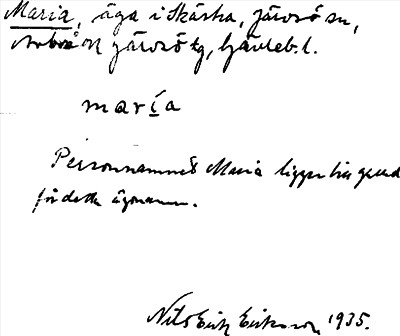 Maria, äga i Skärsta, Järvsö sn,
Arbrå och Järvsö tg, Gävleb. l.
maría
Personnamnet Maria ligger till grund
för detta ägonamn.
Nils Erik Eriksson 1935.